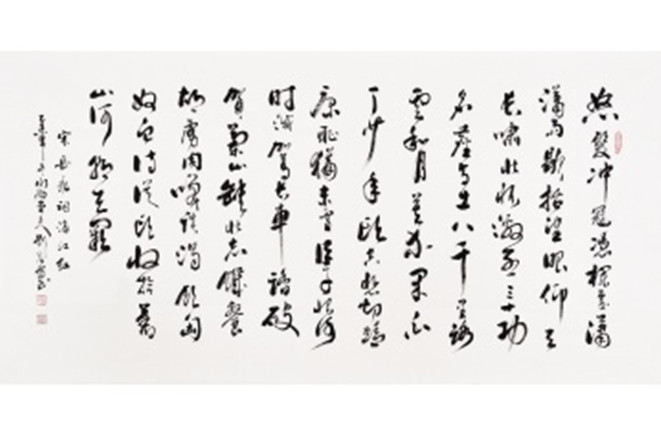 怒髮冲冠憑欄處瀟
瀟雨歇抬望眼仰天
长嘯壯懷激烈三十功
名塵与土八千里路
雲和月莫等閑白
了少年頭空悲切靖
康耻猶未雪臣子恨何
時滅駕长車踏破
賀蘭山缺壯志饑餐
胡虜肉笑談渴飲匈
奴血待從頭收拾舊
山河朝天闕
宋岳飛詞满江紅